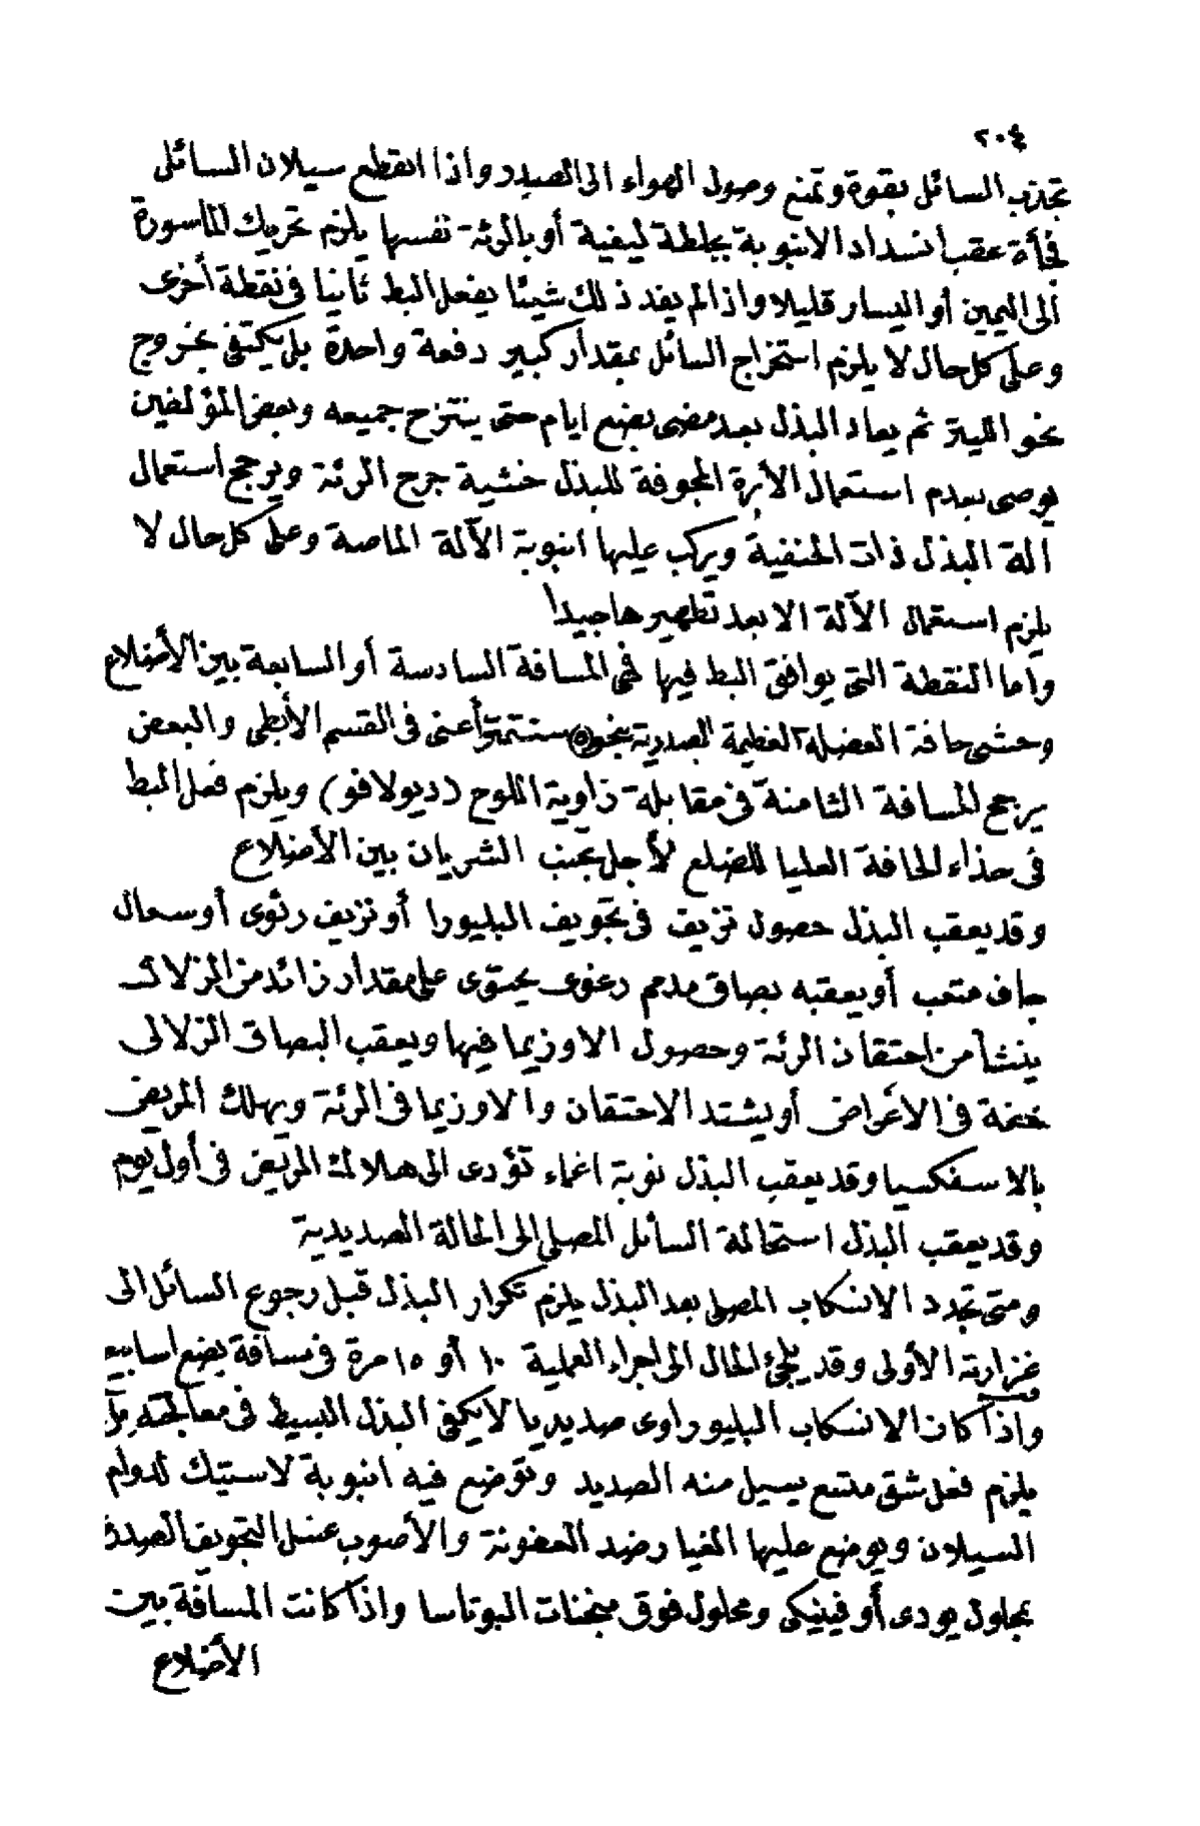 ٢٠٤
تجذب السائل بقوة وتمنع وصول الهواء الى الصدر واذا انقطع سيلان السائل
فجأة عقب انسداد الانبوبة بجلطة ليفية أو بالرئة نفسها يلزم تحريك الماسورة
الى اليمين أو اليسار قليلا واذا لم يفد ذلك شيئا يفعل البط ثانيا فى نقطة أخرى
وعلى كل حال لا يلزم استخراج السائل بمقدار كبير دفعة واحدة بل يكتفى بخروج
نحو الليتر ثم يعاد البذل بعد مضى بضع ايام حتى ينتزح جميعه وبعض المؤلفين
يوصى بعدم استعمال الأبرة المجوفة للبذل خشية جرح الرئة ويرجح أستعمال
الة البذل ذات الحنفية ويركب عليها انبوبة الآلة الماصة وعلى كل حال لا
يلزم استعمال الآلة الا بعد تطهيرها جيدا
وأما النقطة التى يوافق البط فيها فهى المسافة السادسة أو السابعة بين الأضلاع
وحشى حافة العضلة العظيمة الصدرية بنحو ٥ سنتمتر أعنى فى القسم الأبطى والبعض
يرجح المسافة الثامنة فى مقابلة زاوية اللوح (ديولافو) ويلزم فعل البط
فى حذاء الحافة العليا للضلع لأجل تجنب الشريان بين الأضلاع
وقد يعقب البذل حصول نزيف فى تجويف البليورا أو نزيف رئوى أو سعال
جاف متعب أو يعقبه بصاق مدمم رغوى يحتوى على مقدار زائد من الزلال
ينشأ من احتقان الرئة وحصول الاوزيما فيها ويعقب البصاق الزلالى
خفة فى الأعراض أو يشتد الاحتقان والاوزيما فى الرئة ويهلك المريض
بالاسفكسيا وقد يعقب البذل نوبة اغماء تؤدى الى هلاك المريض فى أول يوم
وقد يعقب البذل استحالة السائل المصلى الى الحالة الصديدية
ومتى تجدد الانسكاب المصلى بعد البذل يلزم تكرار البذل قبل رجوع السائل الى
غزارته الأولى وقد يلجئ الحال الى اجراء العملية ١٠ أو ١٥ مرة فى مسافة بضع اسابيع
واذا كان الانسكاب البليوراوى صديديا لا يكفى البذل البسيط فى معالجته بل
يلزم فعل شق متسع يسيل منه الصديد وتوضع فيه انبوبة لاستيك لدوام
السيلان ويوضع عليها الغيار ضد العفونة والأصوب غسل التجويف الصدرى
بمحلول يودى أو فينيكى ومحلول فوق منجنات البوتاسا واذا كانت المسافة بين
الأضلاع